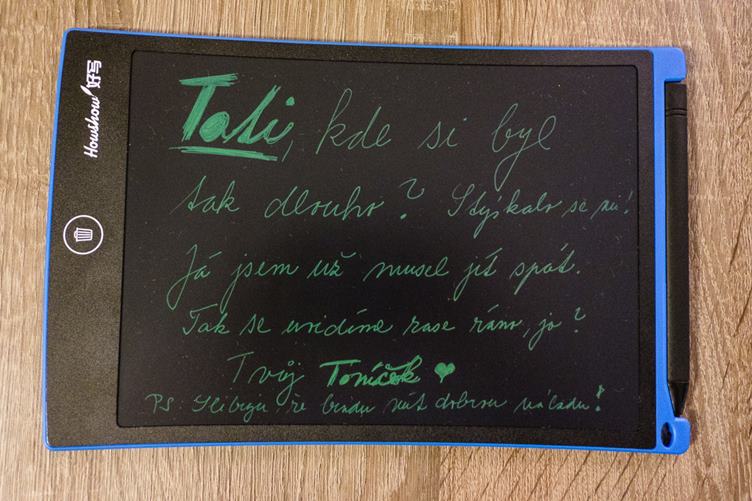 Howshow 写秀
Tati, kde si byl
tak dlouho? Stýskalo se mi!
Já jsem už musel jít spát.
Tak se uvidíme zase ráno, jo?
Tvůj Toníček ♥
PS: Slibuju, že budu mít dobrou náladu!